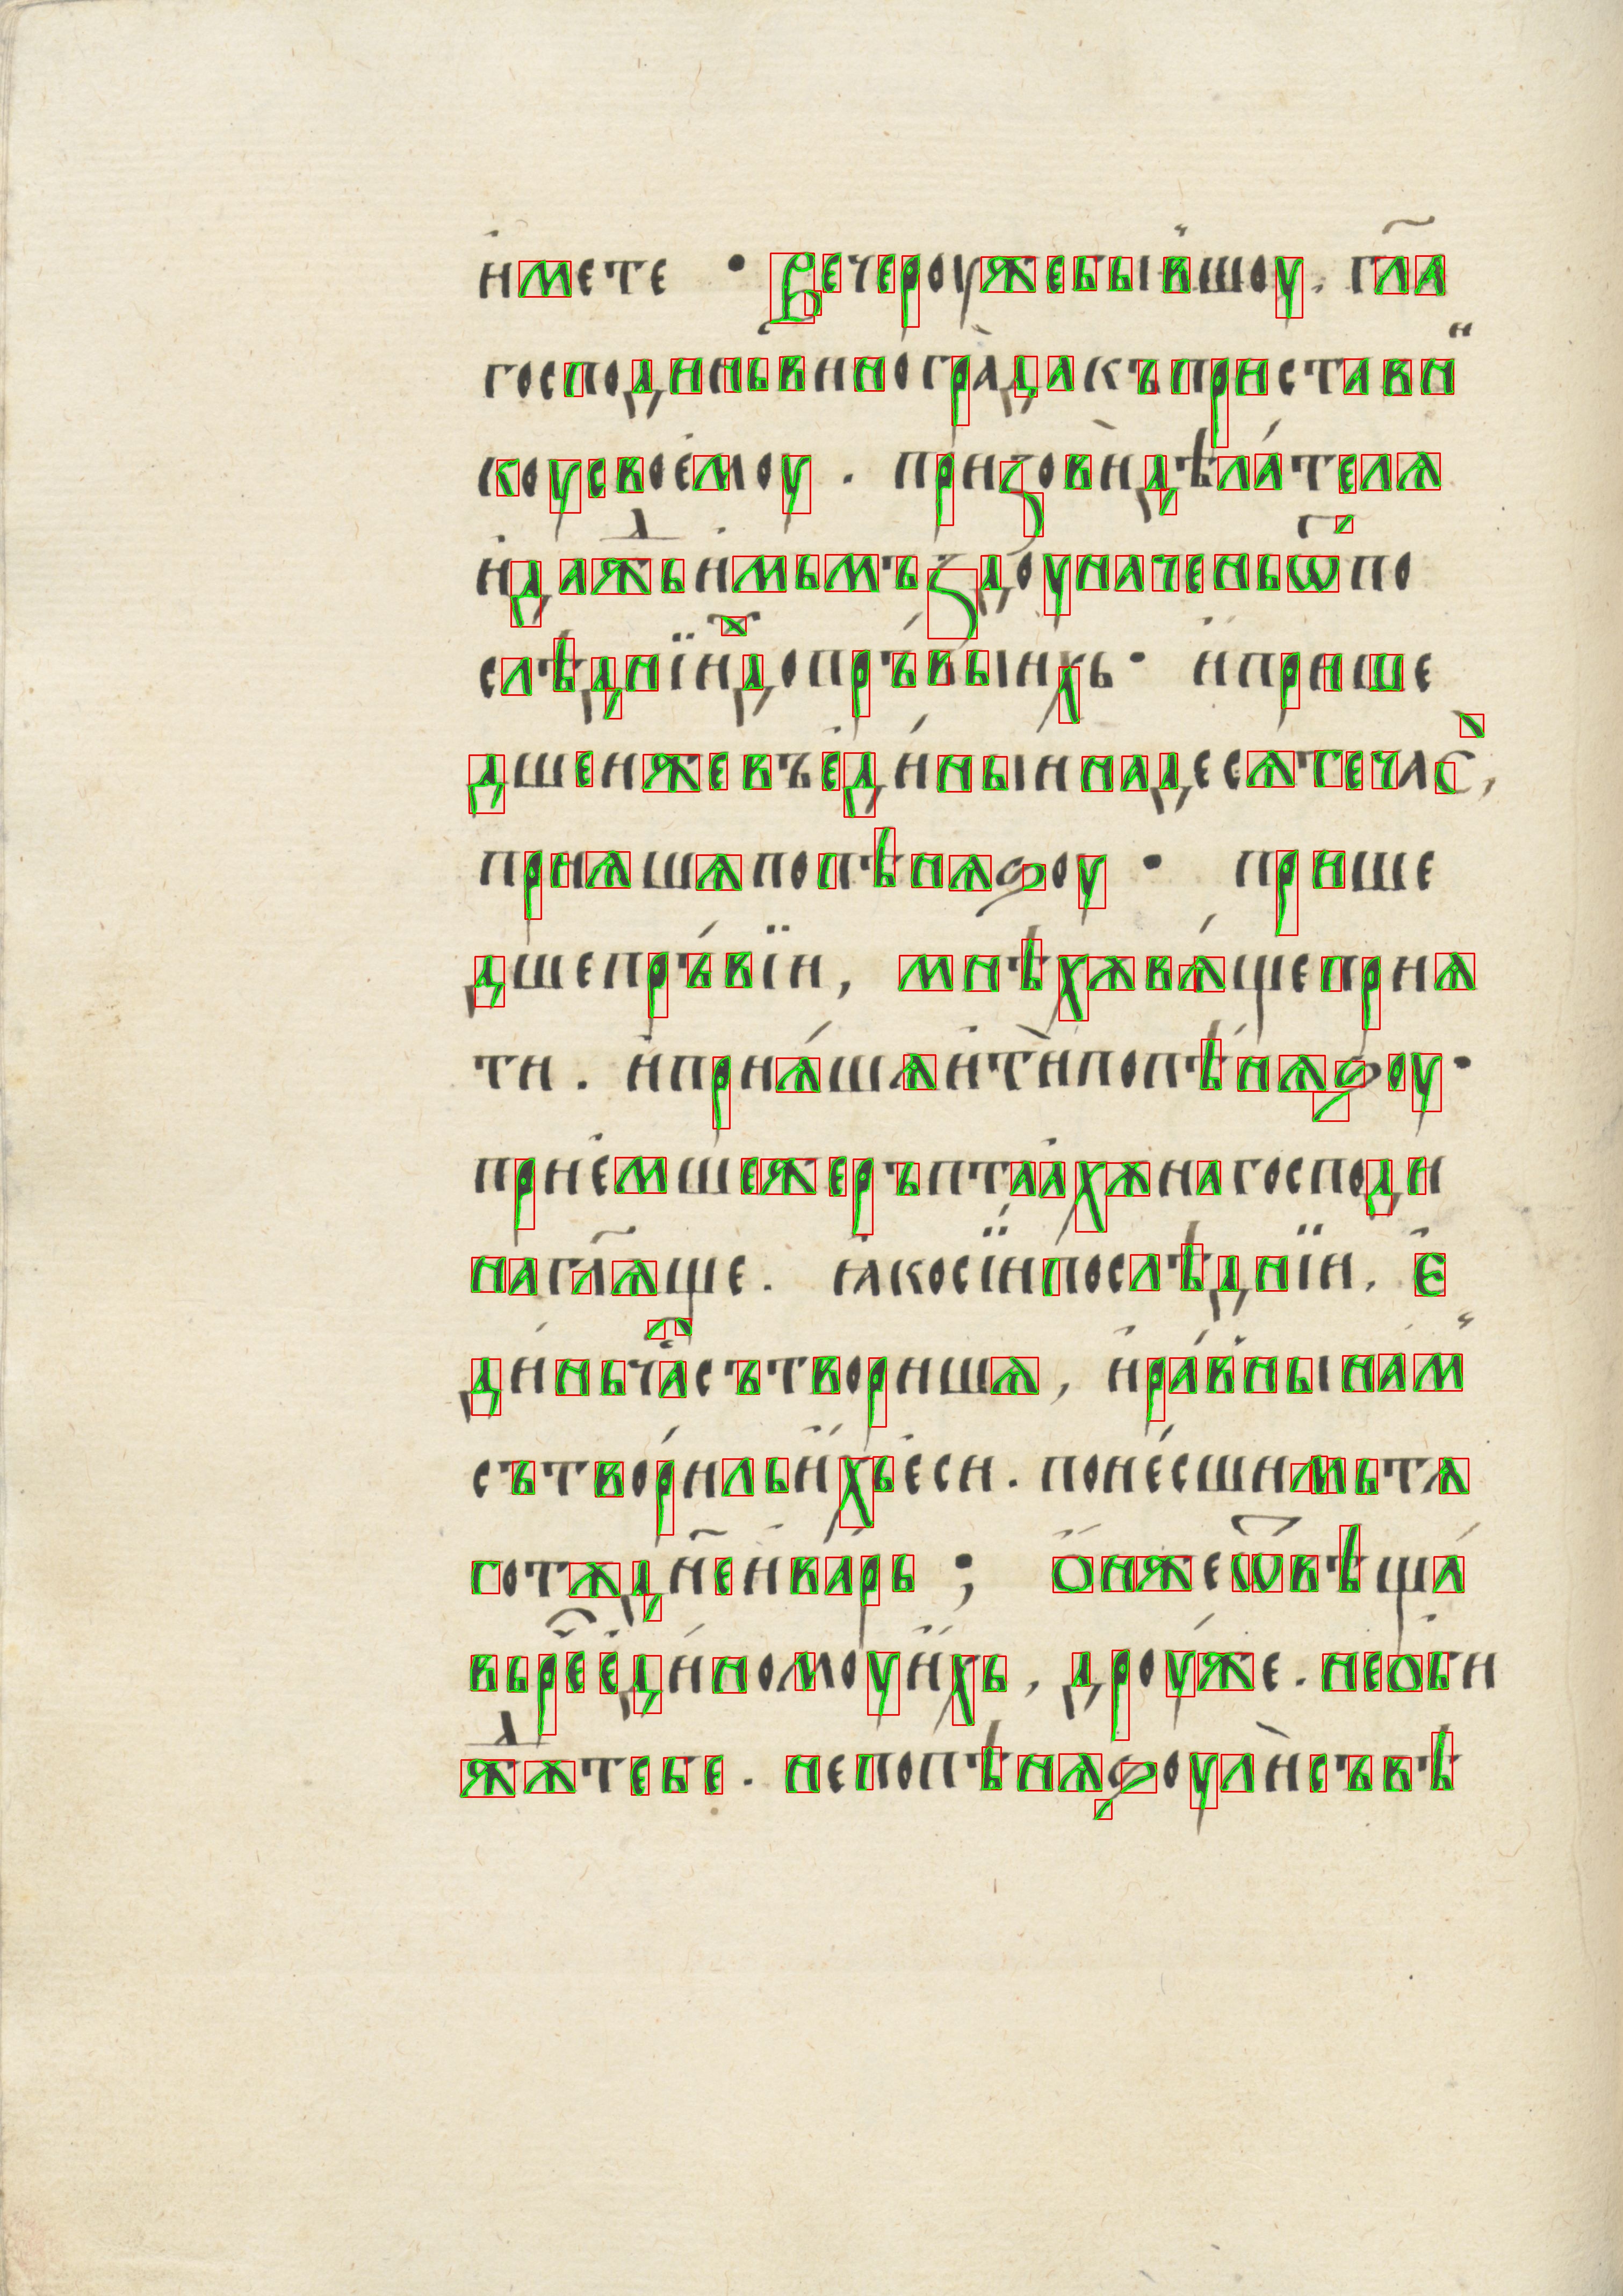 и҆мете · Вечероужебывшоу. гл҃а
господиньвиноградакъпристави
коусвоемоу. призовидѣлателя
и҆даждьимьмъздоуначеньѿпо
слѣднїидопръвыихь· и҆прише
дшеижевъединыинадесѧтечас,
приѧшѧпопѣнѧѕоу · прише
дшепръвїи, мнѣхѫвѧщеприѧ
ти. и҆приѧшѧитипопѣнѧѕоу·
приемшежеръптаахѫнагосподи
нагл҃ѧще. ꙗкосїипослѣднїи, є
диньчассътворишѧ, иравнынам
сътворильихьеси. понесшимьтѧ
готѫдн҃еиварь; Ѻнжеѿвѣща
вьреединомоуихь, дроуже. необи
ждѫтебе. непопѣнѧѕоулисъвѣ